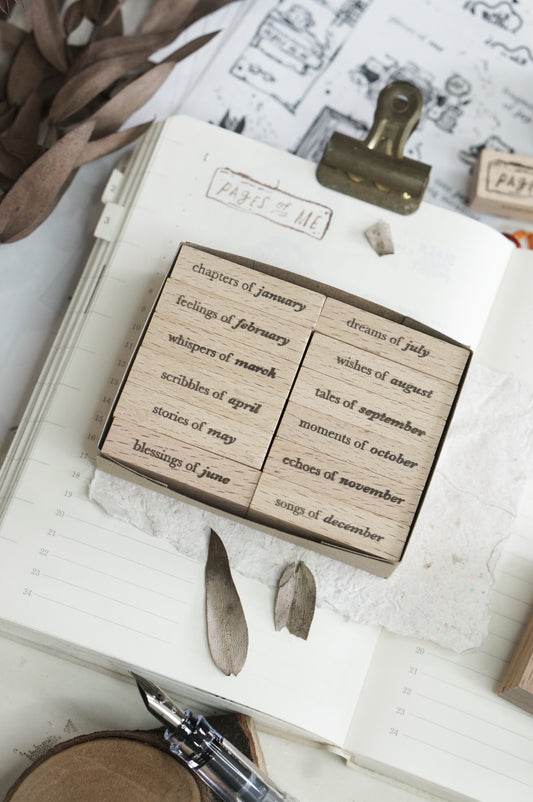 PAGES of ME
2
3
chapters of january
feelings of february
whispers of march
scribbles of april
stories of may
blessings of june
dreams of july
wishes of august
tales of september
moments of october
echoes of november
songs of december
PAGE
15
16
17
18
19
20
21
22
23
24
20
21
22
23
24